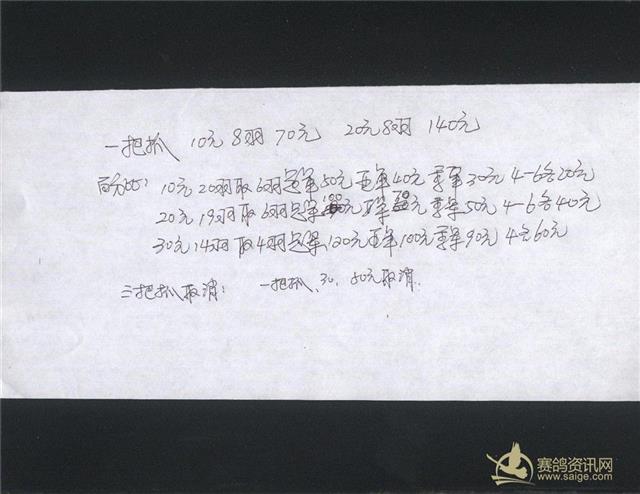 一把抓 10元8羽70元 20元8羽 140元
百分比: 10元20羽取6羽冠军50元亚军40元季军30元4-6名20元
20元19羽取6羽冠军元亚军元季军50元4-6名40元
30元14羽取4羽冠军120元亚军100元季军90元4名60元
三把抓取消: 一把抓、30、50元取消.
赛鸽资讯网
www.saige.com